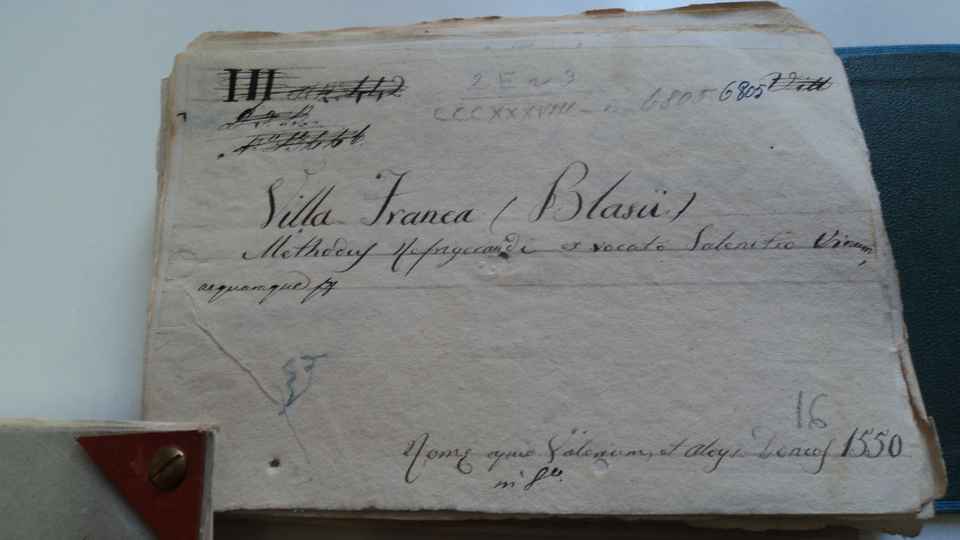 III
2 E n 3
CCCXXXVIII 6805 6805 Vill
Villa Franca (Blasii)
Methodus Refrigerandi ex vocato Salenitro Vinum,
aequamque
16
Rome apud Valerium, et Aloys. Doricos 1550
in 8vo.